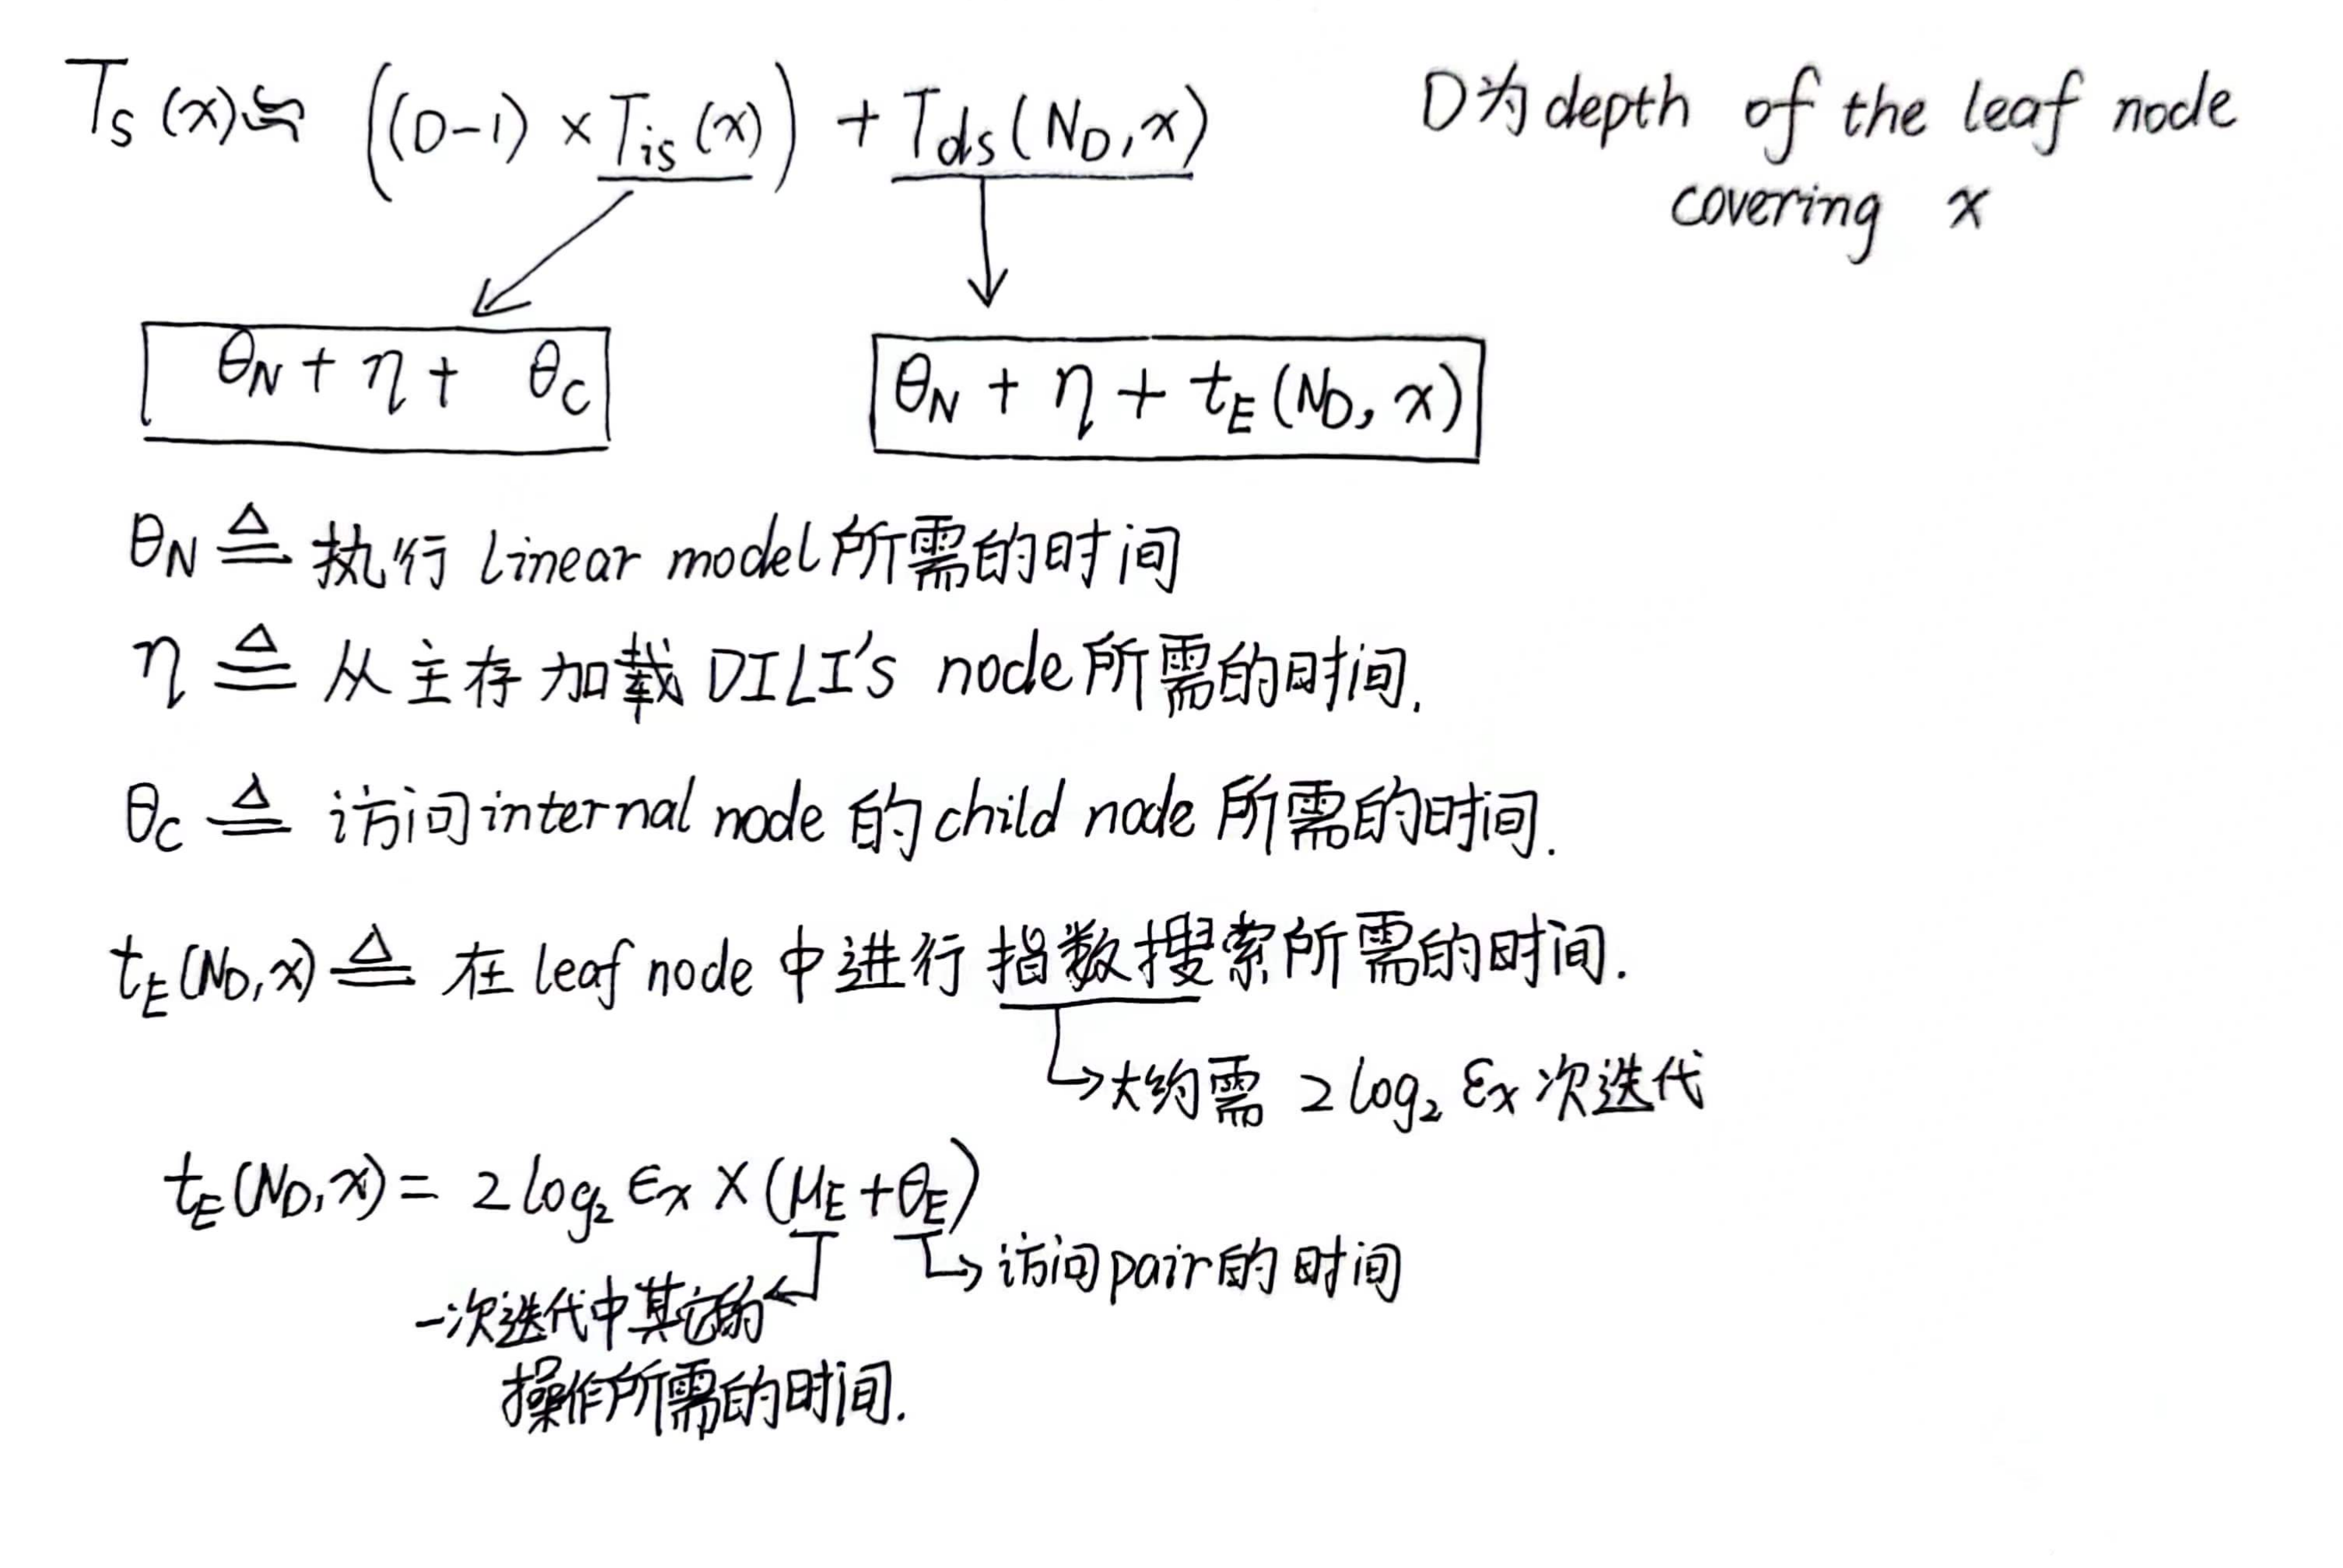 Ts(x) ≒ ((D-1) × Tis(x)) + Tds(ND, x)
D为 depth of the leaf node
covering x
θN + η + θC
θN + η + tE(ND, x)
θN ≜ 执行 linear model 所需的时间
η ≜ 从主存加载 DILI's node 所需的时间.
θC ≜ 访问 internal node 的 child node 所需的时间.
tE(ND, x) ≜ 在 leaf node 中进行指数搜索所需的时间.
大约需 2 log₂ εx 次迭代
tE(ND, x) = 2 log₂ εx × (μE + θE)
访问 pair 的时间
一次迭代中其它的
操作所需的时间.